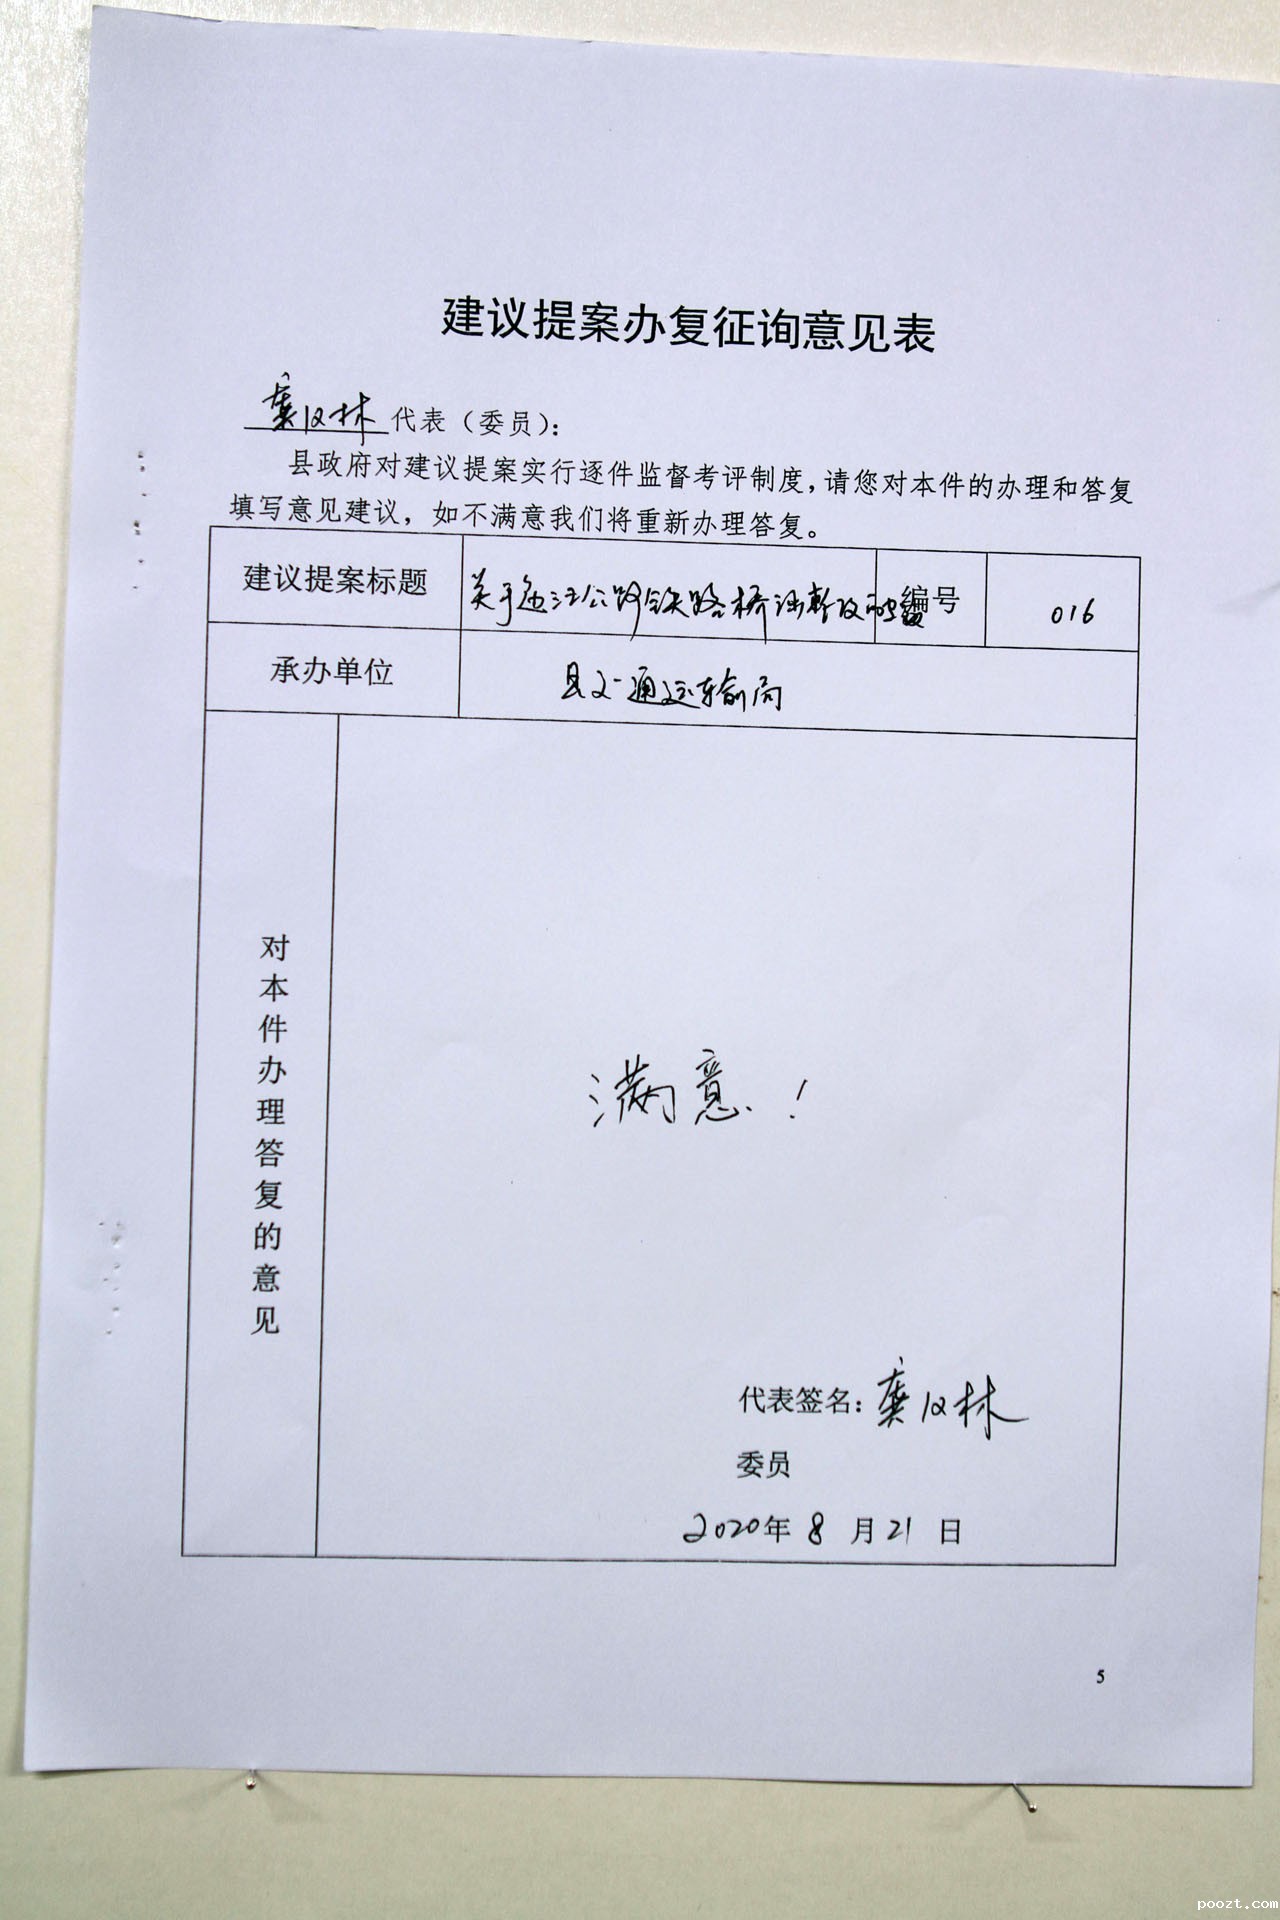 建议提案办复征询意见表
龚仅林代表（委员）：
县政府对建议提案实行逐件监督考评制度，请您对本件的办理和答复
填写意见建议，如不满意我们将重新办理答复。
建议提案标题 关于 公路铁路桥涵 编号 016
承办单位 县交通运输局
对本件办理答复的意见
满意！
代表签名：龚仅林
委员
2020年8月21日
5
poozt.com